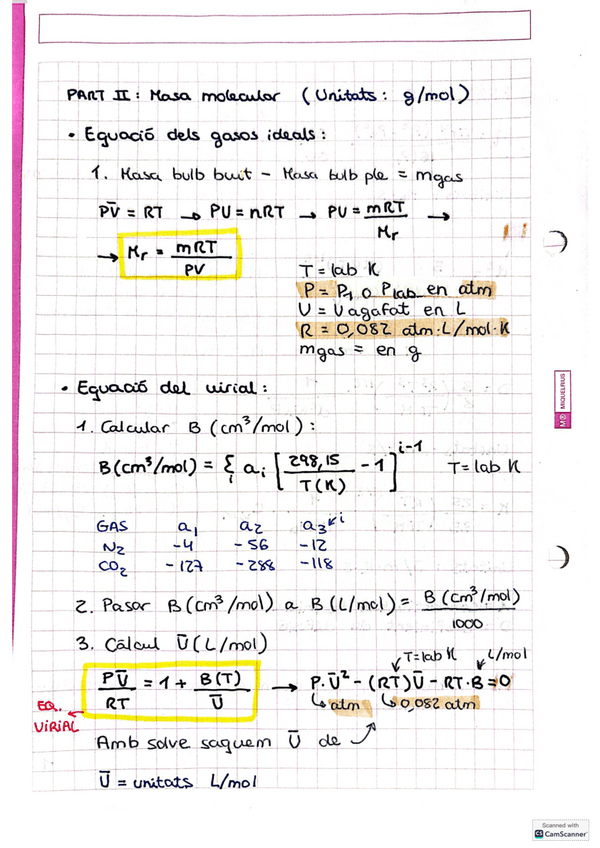 PART II: Masa molecular (Unitats: g/mol)
• Equació dels gasos ideals:
1. Masa bulb buit - Masa bulb ple = mgas
PV̄ = RT → PV = nRT → PV = mRT/Mr →
→ Mr = mRT/PV
T = lab K
P = P1 o Plab en atm
V = V agafat en L
R = 0,082 atm·L/mol·K
mgas = en g
• Equació del virial:
1. Calcular B (cm³/mol):
B(cm³/mol) = Σi ai [298,15/T(K) - 1]^i-1 T = lab K
GAS a1 a2 a3 ↙i
N2 -4 -56 -12
CO2 -127 -288 -118
2. Pasar B(cm³/mol) a B(L/mol) = B(cm³/mol)/1000
3. Càlcul V̄(L/mol)
T=lab K L/mol
PV̄/RT = 1 + B(T)/V̄ → P·V̄² - (RT)V̄ - RT·B = 0
EQ. VIRIAL
↳atm ↳0,082 atm
Amb solve saquem V̄ de
V̄ = unitats L/mol
M® MIQUELRIUS
Scanned with
CS CamScanner